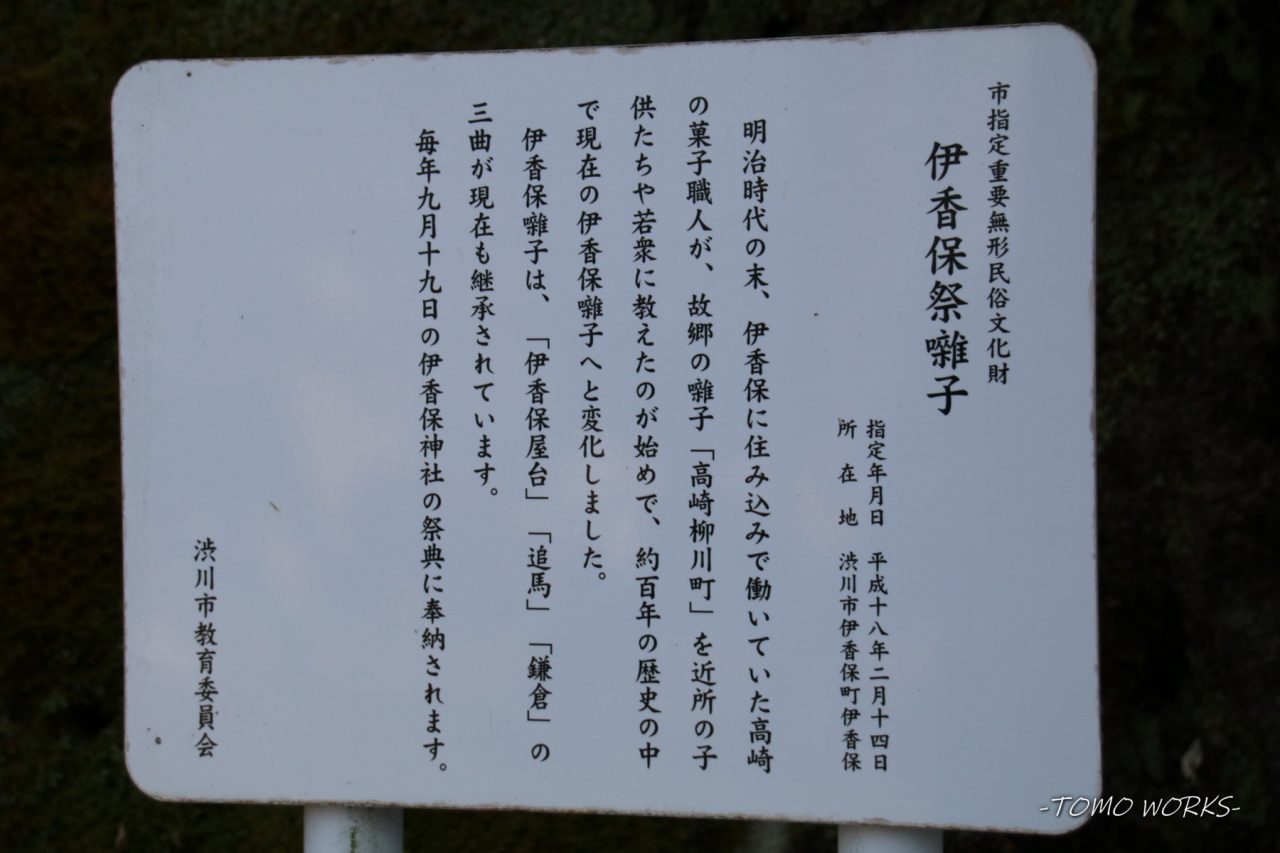 市指定重要無形民俗文化財
伊香保祭囃子
指定年月日　平成十八年二月十四日
所　在　地　渋川市伊香保町伊香保
明治時代の末、伊香保に住み込みで働いていた高崎
の菓子職人が、故郷の囃子「高崎柳川町」を近所の子
供たちや若衆に教えたのが始めで、約百年の歴史の中
で現在の伊香保囃子へと変化しました。
伊香保囃子は、「伊香保屋台」「追馬」「鎌倉」の
三曲が現在も継承されています。
毎年九月十九日の伊香保神社の祭典に奉納されます。
渋川市教育委員会
-TOMO WORKS-